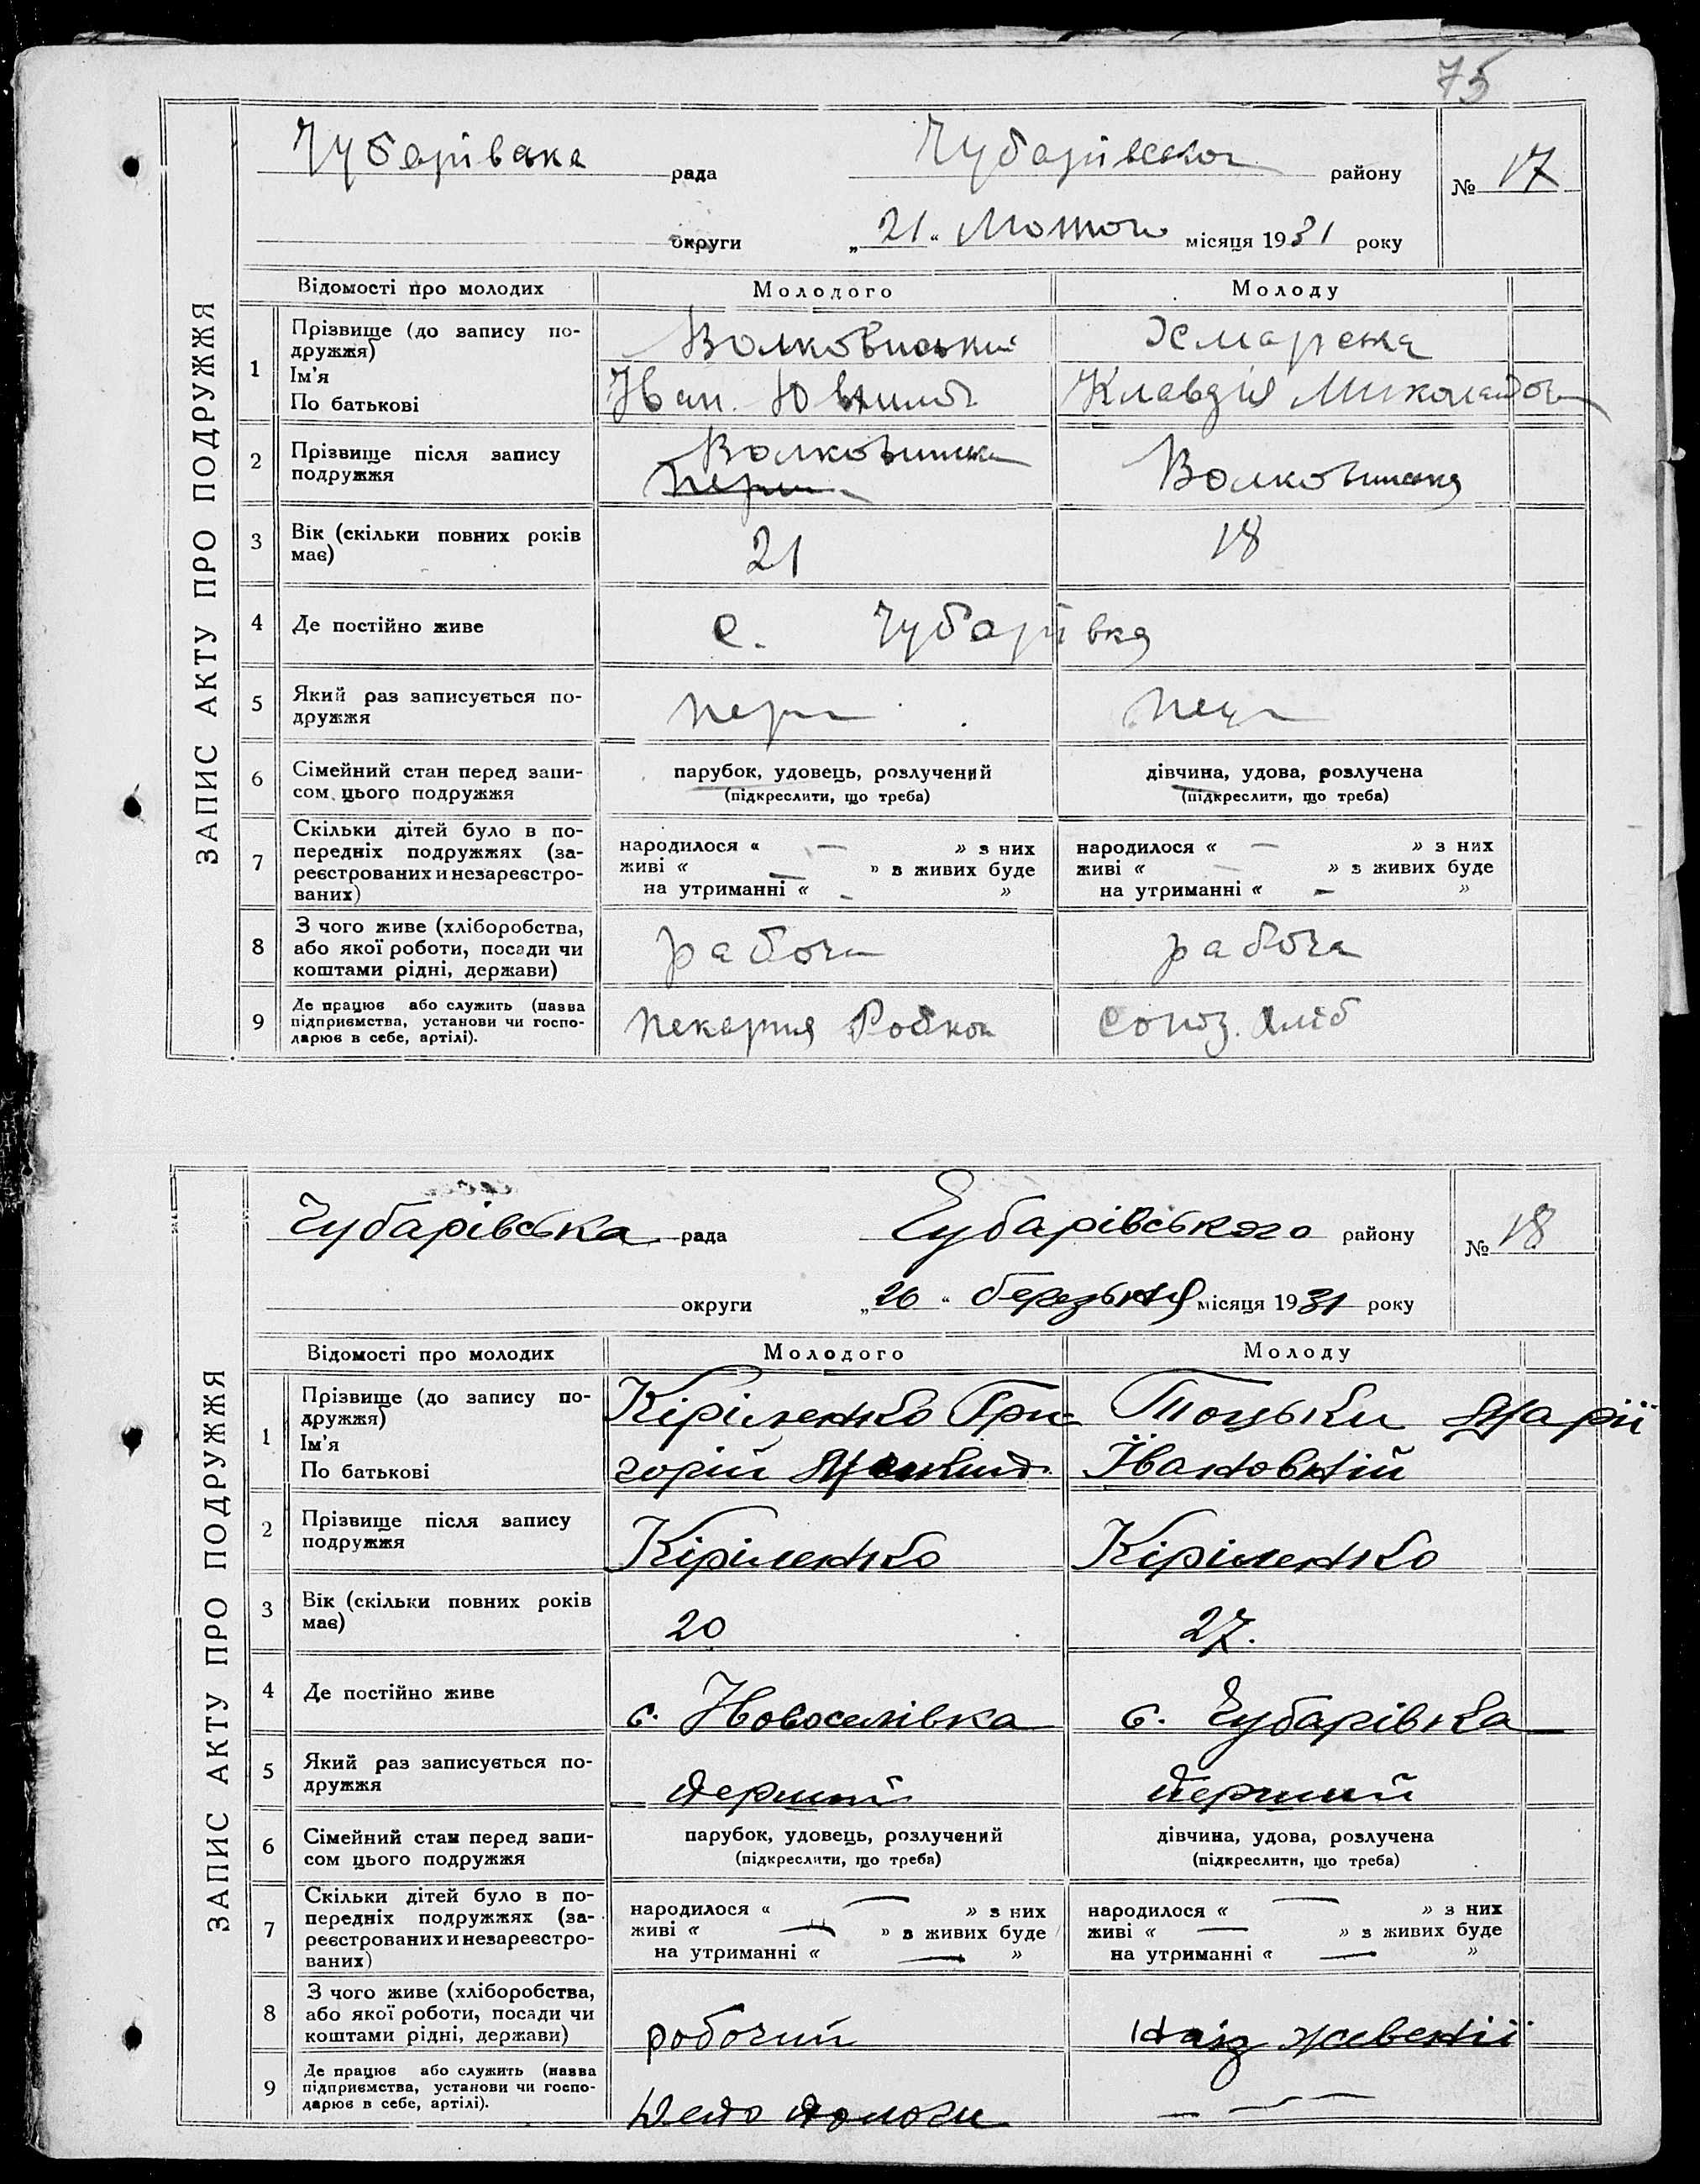 75
ЗАПИС АКТУ ПРО ПОДРУЖЖЯ
Чубарівська рада Чубарівського району № 17
округи „21“ Лютого місяця 1931 року
Відомості про молодих Молодого Молоду
1 Прізвище (до запису по-
дружжя) Волковиський Хмарська
Ім'я
По батькові Іван Клавдія Миколаївна
2 Прізвище після запису
подружжя Волковинська
Перш
Волковинська
3 Вік (скільки повних років
має) 21 18
4 Де постійно живе с. Чубарівка
5 Який раз записується по-
дружжя перш перш
6 Сімейний стан перед запи-
сом цього подружжя
парубок, удовець, розлучений
(підкреслити, що треба)
дівчина, удова, розлучена
(підкреслити, що треба)
7 Скільки дітей було в по-
передніх подружжях (за-
реєстрованих и незареєстро-
ваних)
народилося « — » з них
живі « — » з живих буде
на утриманні « — »
народилося « — » з них
живі « — » з живих буде
на утриманні « — »
8 З чого живе (хліборобства,
або якої роботи, посади чи
коштами рідні, держави) рабоч рабоча
9 Де працює або служить (назва
підприємства, установи чи госпо-
дарює в себе, артілі). пекарня Союз. хліб
ЗАПИС АКТУ ПРО ПОДРУЖЖЯ
Чубарівська рада Чубарівського району № 18
округи „26“ березьня місяця 1931 року
Відомості про молодих Молодого Молоду
1 Прізвище (до запису по-
дружжя) Кіріленко Гри- Тоцьки Марії
Ім'я
По батькові горій Івановній
2 Прізвище після запису
подружжя Кіріленко Кіріленко
3 Вік (скільки повних років
має) 20 27.
4 Де постійно живе с. Новоселівка с. Чубарівка
5 Який раз записується по-
дружжя перший перший
6 Сімейний стан перед запи-
сом цього подружжя
парубок, удовець, розлучений
(підкреслити, що треба)
дівчина, удова, розлучена
(підкреслити, що треба)
7 Скільки дітей було в по-
передніх подружжях (за-
реєстрованих и незареєстро-
ваних)
народилося « — » з них
живі « — » з живих буде
на утриманні « — »
народилося « — » з них
живі « — » з живих буде
на утриманні « — »
8 З чого живе (хліборобства,
або якої роботи, посади чи
коштами рідні, держави) робочий
9 Де працює або служить (назва
підприємства, установи чи госпо-
дарює в себе, артілі). — —